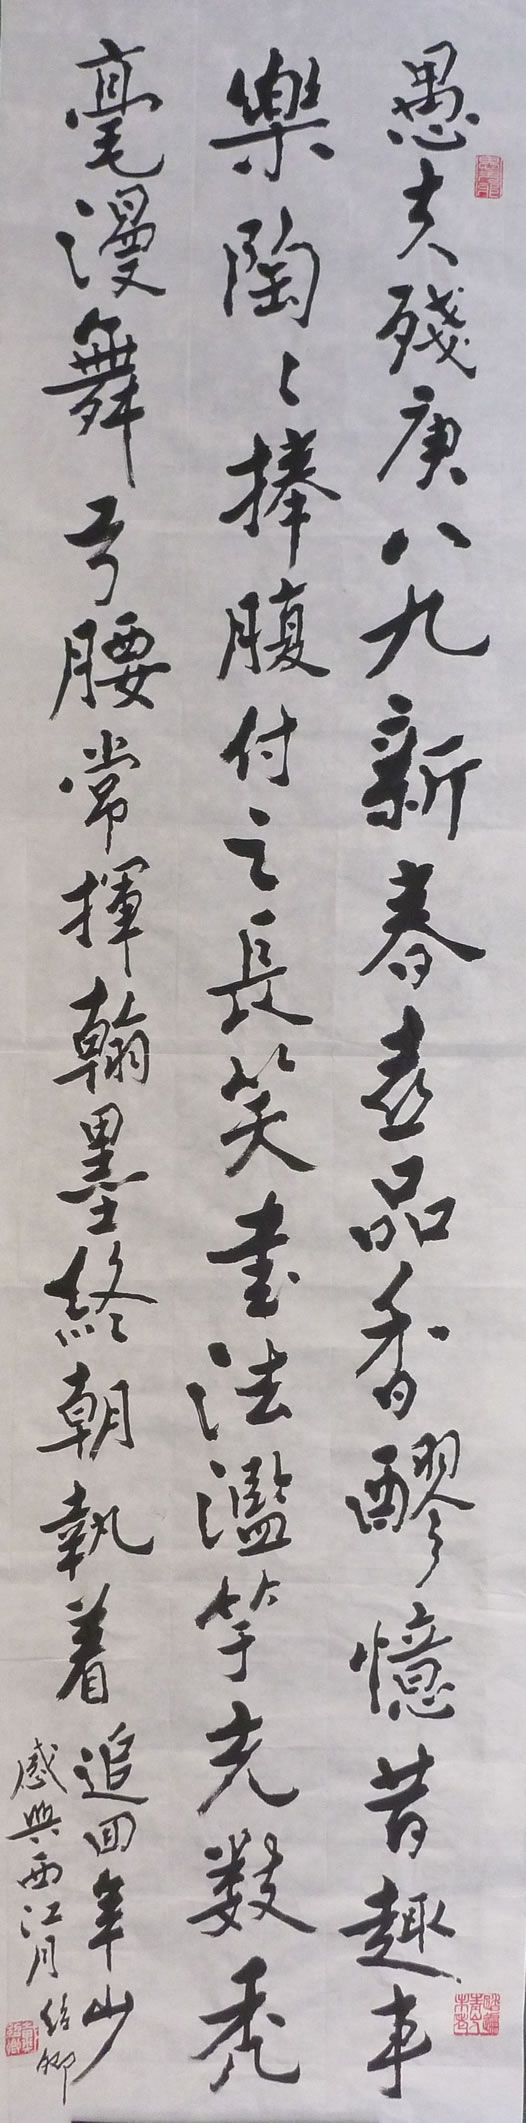 愚夫殘庚八九新春壺品香醪憶昔趣事
樂陶〻捧腹付之長笑書法濫竽充數禿
毫漫舞弓腰常揮翰墨終朝執着
追回年少
感興西江月 紹卿